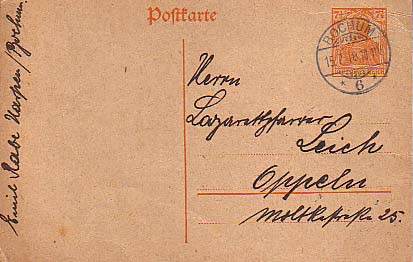 Postkarte
7½
BOCHUM
6
Herrn
Lazarettpfarrer
Leich
Oppeln
Moltkestraße 25.
Emil Rabe Harpen/Bochum